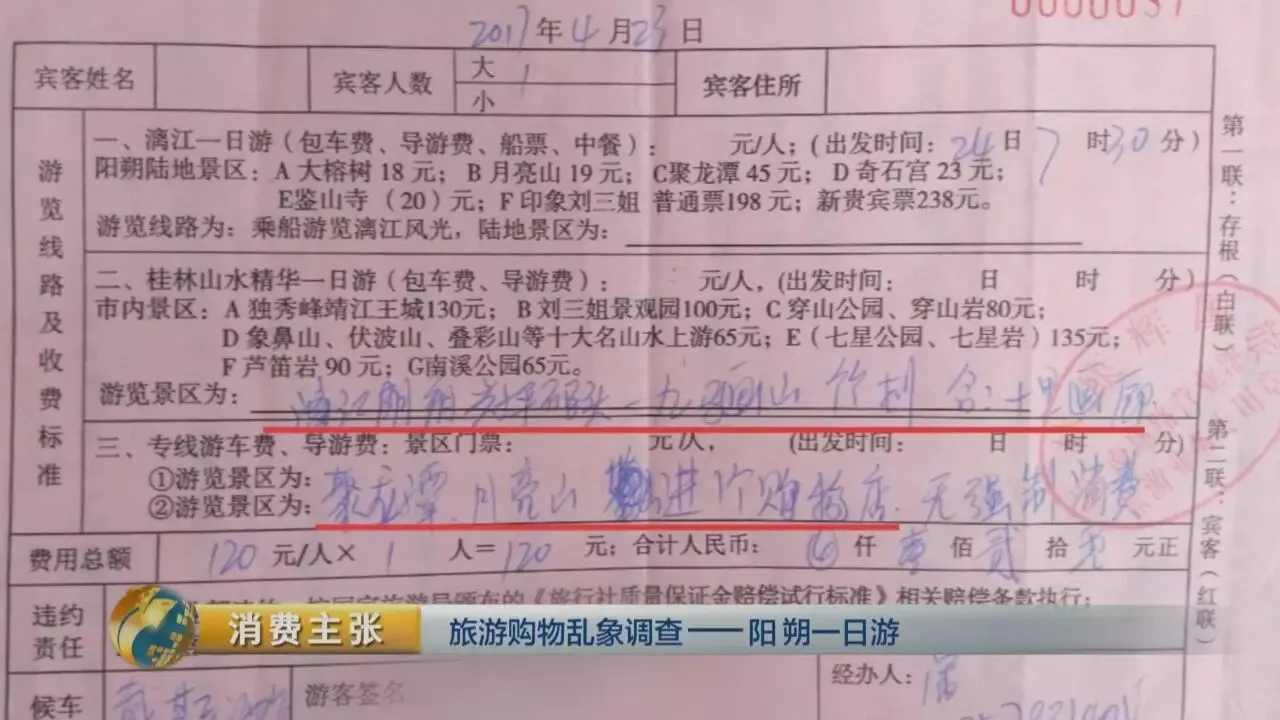 0000037
2017年4月23日
宾客姓名 宾客人数 大 1 小 宾客住所
游览线路及收费标准
一、漓江一日游（包车费、导游费、船票、中餐）： 元/人；（出发时间：24日7时30分）
阳朔陆地景区：A大榕树18元；B月亮山19元；C聚龙潭45元；D奇石宫23元；
E鉴山寺（20）元；F印象刘三姐 普通票198元；新贵宾票238元。
游览线路为：乘船游览漓江风光，陆地景区为：
二、桂林山水精华一日游（包车费、导游费）： 元/人，（出发时间： 日 时 分）
市内景区：A独秀峰靖江王城130元；B刘三姐景观园100元；C穿山公园、穿山岩80元；
D象鼻山、伏波山、叠彩山等十大名山水上游65元；E（七星公园、七星岩）135元；
F芦笛岩90元；G南溪公园65元。
游览景区为： 九马画山 竹 含：十里画廊
三、专线游车费、导游费：景区门票： 元/人， （出发时间： 日 时 分）
①游览景区为：聚龙潭.月亮山 进个购物店.无强制消费
②游览景区为：
费用总额 120元/人×1人=120元；合计人民币： 仟壹佰贰拾 元正
违约责任
按国家旅游局颁布的《旅行社质量保证金赔偿试行标准》相关赔偿条款执行；
候车
游客签名
经办人：
第一联：存根（白联）
第二联：宾客（红联）
消费主张
旅游购物乱象调查——阳朔一日游